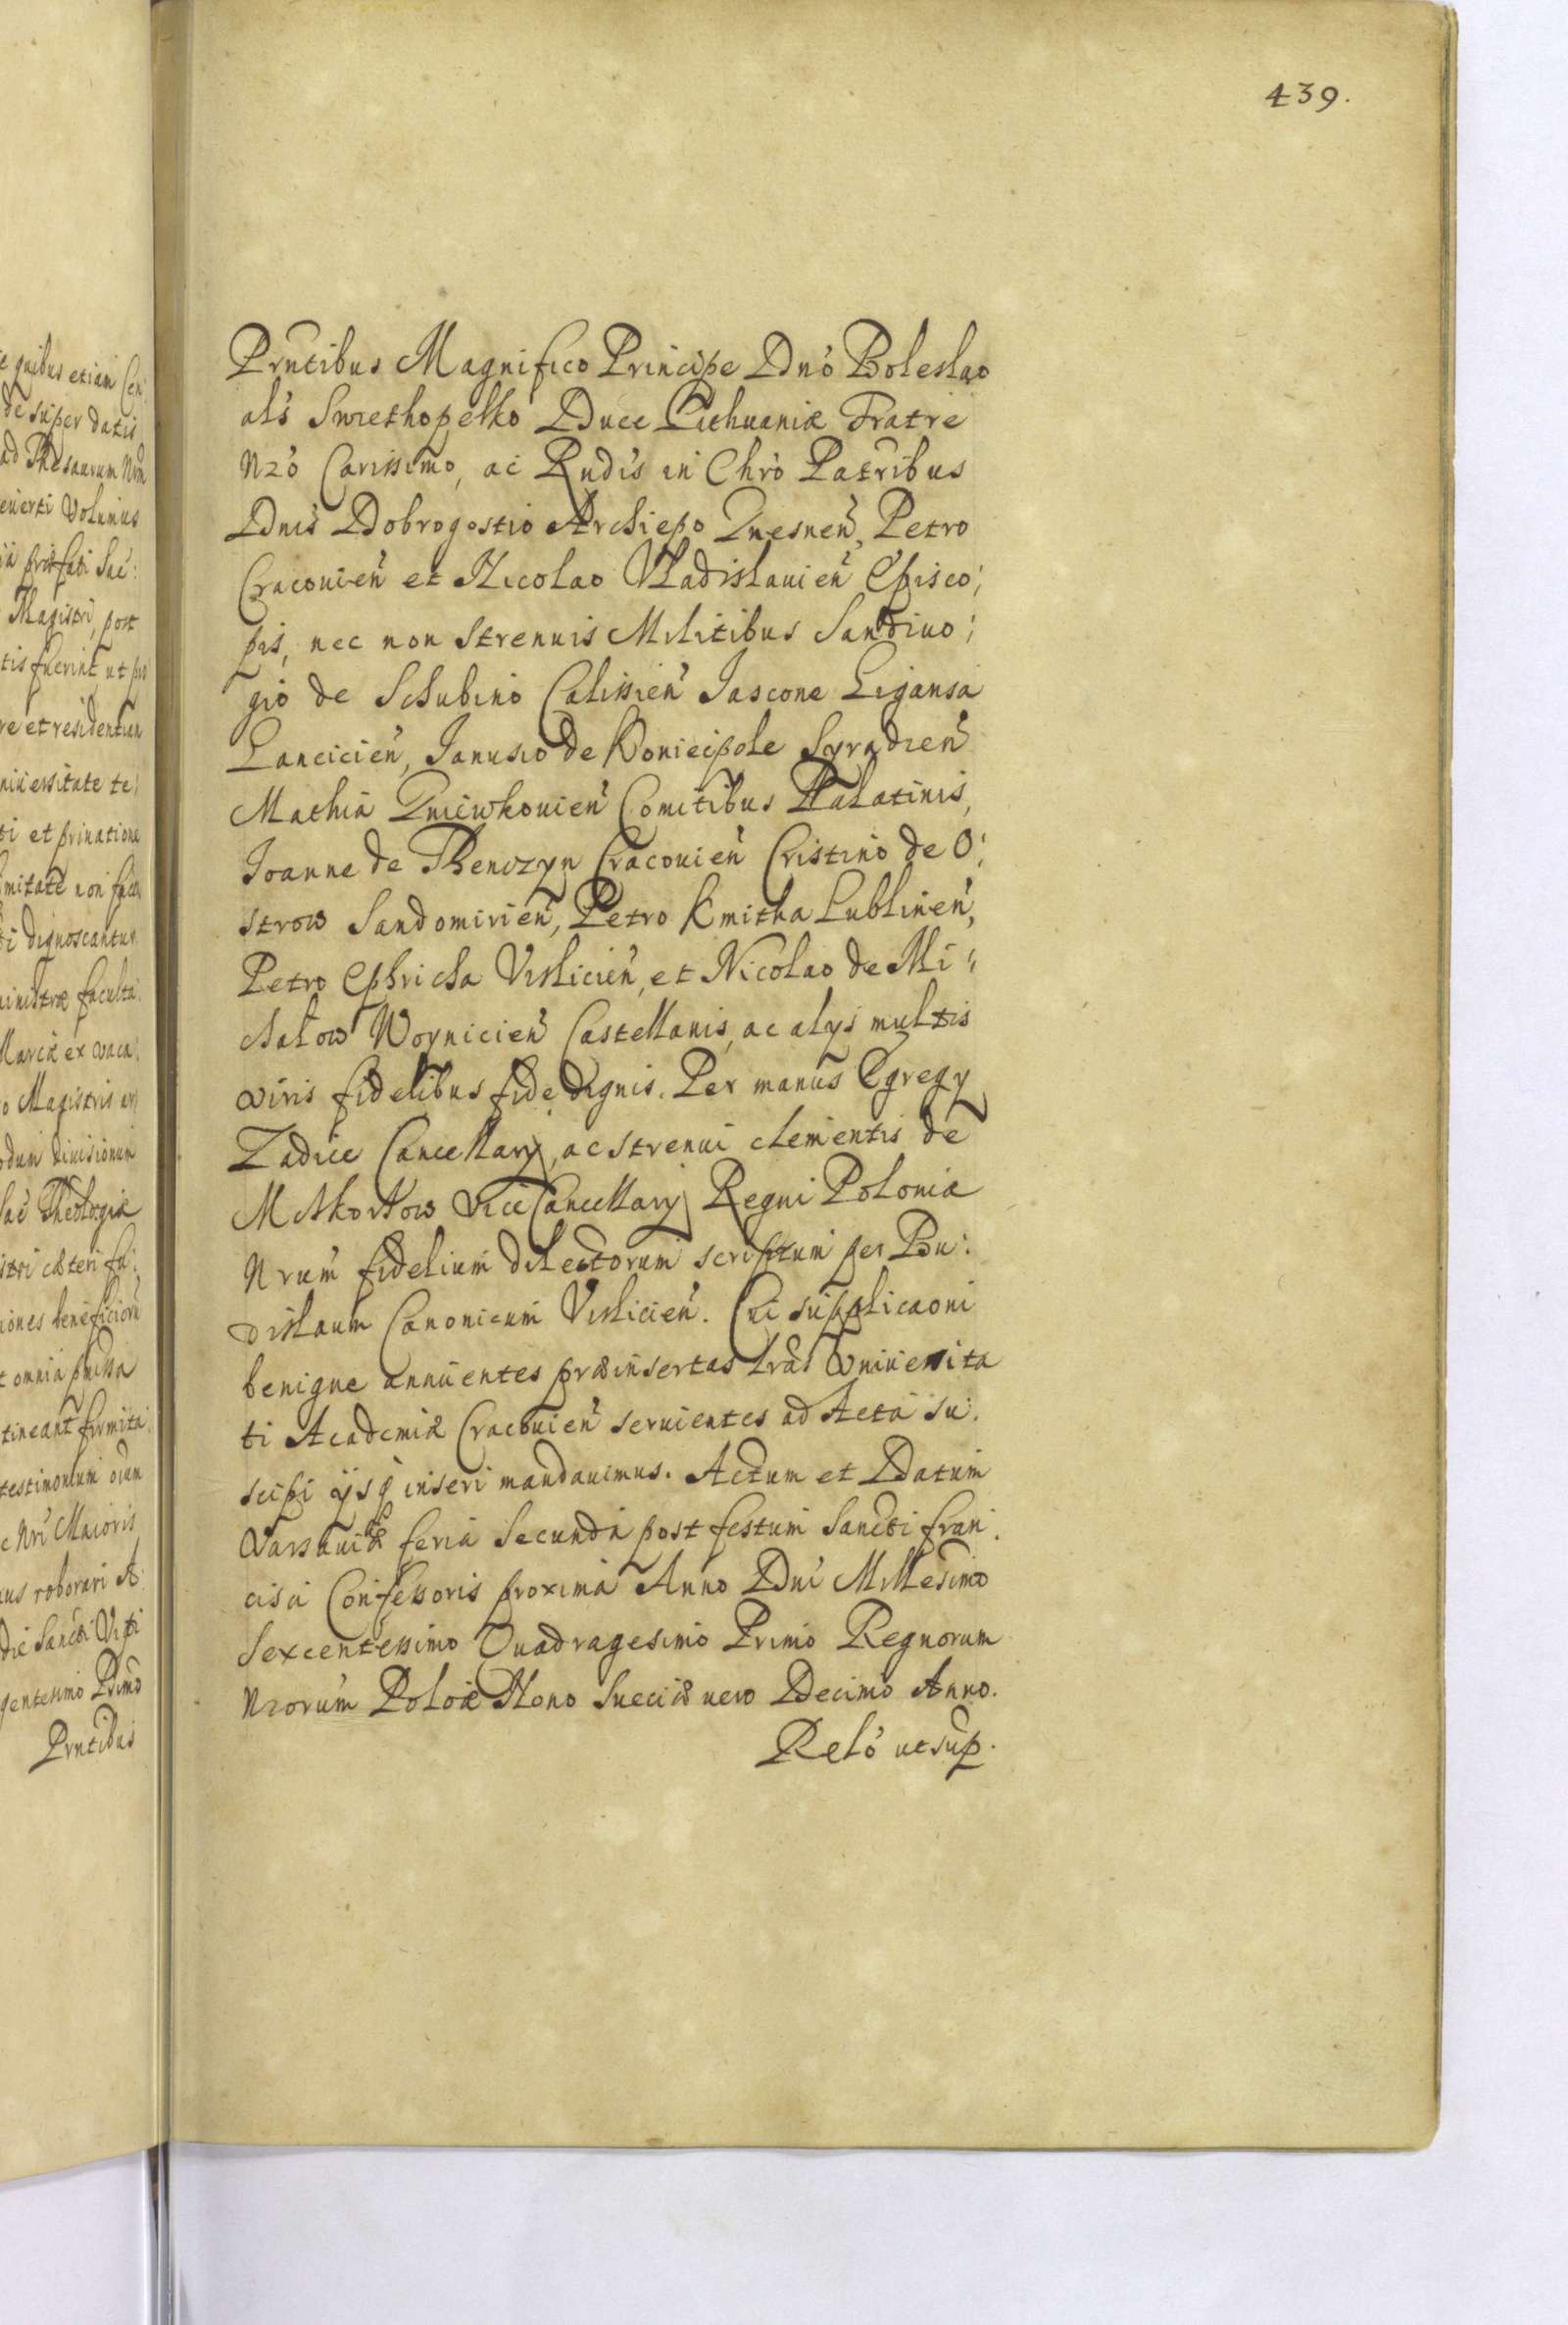 439.
Prntibus Magnifico Principe Dno Boleslao
als Swiethopelko Duce Lithuaniæ Fratre
Nro Carissimo, ac Rndis in Chro Patribus
Dnis Dobrogostio Archiepo Gnesnen, Petro
Cracouien et Nicolao Vladislauien Episco:
pis, nec non strenuis Militibus Sandiuo:
gio de Schubino Calissien Jascone Ligansa
Lancicien, Janusio de Koniecpole Syradien
Mathia Gniewkouien Comitibus Palatinis,
Joanne de Thenczyn Cracouien Cristino de O:
strow Sandomirien, Petro Kmitha Lublinen,
Petro Ephricha Vislicien, et Nicolao de Mi:
chalow Woynicien Castellanis, ac alys multis
viris fidelibus fide dignis. Per manus Egregy
Zadice Cancellary, ac strenui clementis de
Moskorzow Vice Cancellary Regni Poloniæ
Nrum fidelium dilectorum scriptum per Bu:
dislaum Canonicum Vislicien. Cui supplicaoni
benigne annuentes præinsertas lras Vniuersita
ti Academiæ Cracouien seruientes ad Acta su:
scipi ijsq inseri mandauimus. Actum et Datum
Varsauiæ feria Secunda post festum Sancti fran:
cisci Confessoris proxima Anno Dni Millesimo
Sexcentessimo Quadragesimo Primo Regnorum
Nrorum Poloæ Nono Sueciæ vero Decimo Anno.
Relo ut sup.
e quibus etiam Cen
de super datis
ad Thesaurum Nrm
euerti Volumus
Magistri, post
tis fuerint, ut pro
re et residentiam
niuersitate te
ti et priuatione
ti dignoscantur
inistræ faculta
Marciæ ex vaca
o Magistris
odum diuisionum
Sac Theologiæ
istri cæteri fu:
iones beneficioru
t omnia pmissa
tineant firmita
testimonium oium
c Nri Maioris
us roborari
die Sancti Viti
gentesimo Primo
Prntibus